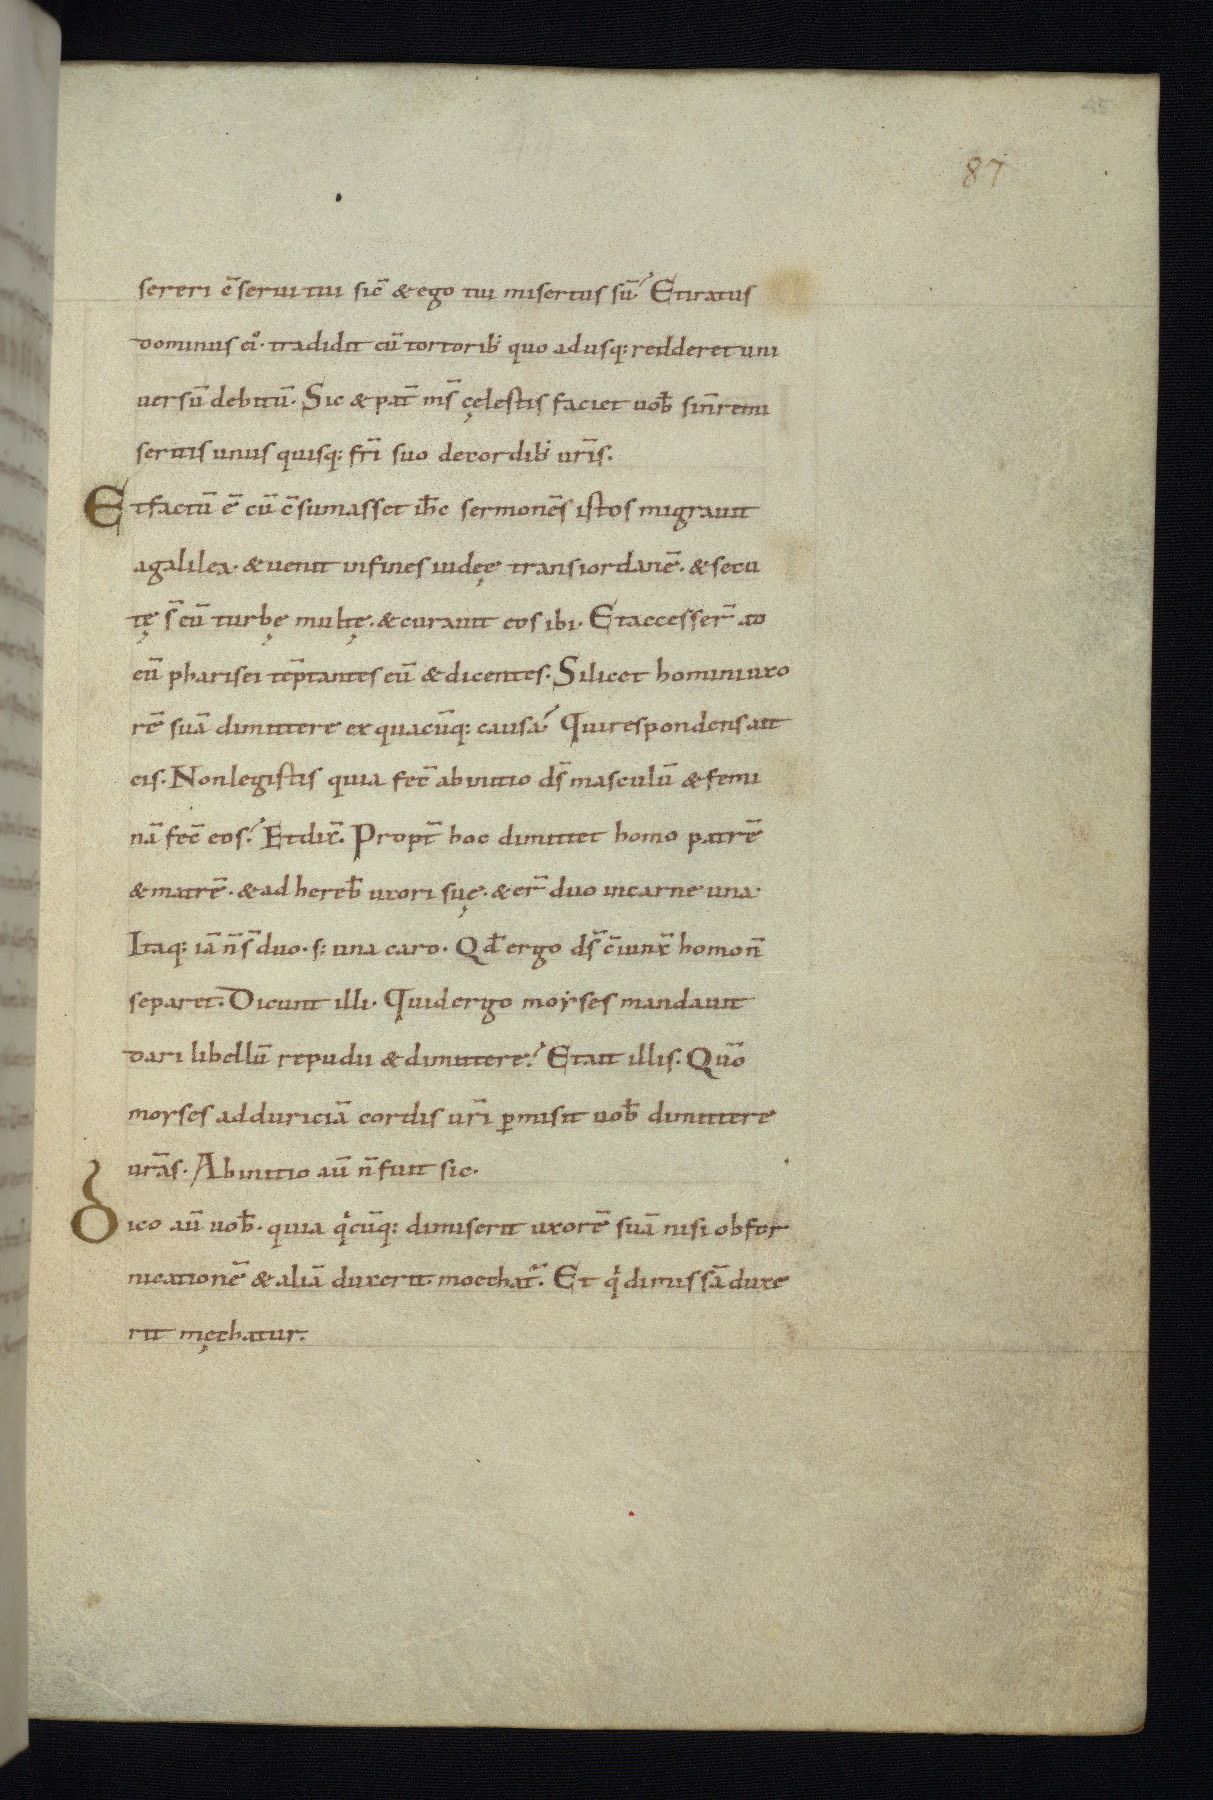 45
87
sereri c̄serui tui sic̄ & ego tui misertus sū? Et iratus
dominus ei᷒· tradidit eū tortorib; quo adusq; redderet uni
uersū debitū· Sic & pat̄ ms̄ cęlestis faciet uob̄ si n̄ remi
seritis unus quisq; fr̄i suo decordib; ur̄is.
Et factū ē cū c̄sumasset ih̄c sermonēs istos migrauit
agalilea· & uenit infines iudeę transiordanē. & secu
tę s̄ eū turbę multę. & curauit eos ibi· Et accesser̄ ad
eū pharisei tēptantes eū & dicentes· Si licet homini uxo
rē suā dimittere ex quacūq; causa? Qui respondens ait
eis. Non legistis quia fec̄ abinitio ds̄ masculū & femi
nā fec̄ eos? Et dix̄. Propt̄ hoc dimittet homo patrē
& matrē· & adhereb̄ uxori suę· & er̄ duo incarne una·
Itaq; iā n̄ s̄ duo· s; una caro· Qd̄ ergo ds̄ c̄iunx̄ homo n̄
separet. Dicunt illi· Quid ergo moẏses mandauit
dari libellū repudii & dimittere? Et ait illis. Quō
moyses ad duriciā cordis ur̄i p̱misit uob̄ dimittere
ur̄as· Ab initio aū n̄ fuit sic·
Dico aū uob̄· quia qⁱcūq; dimiserit uxorē suā nisi ob for
nicationē & aliā duxerit· moechat᷑. Et qⁱ dimissā duxe
rit męchatur.